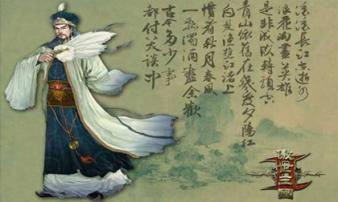 滚滚長江東逝水
浪花淘盡英雄
是非成敗轉頭空
青山依舊在幾度夕陽紅
白髮漁樵江渚上
慣看秋月春風
一壺濁酒喜相逢
古今多少事
都付笑談中
三國